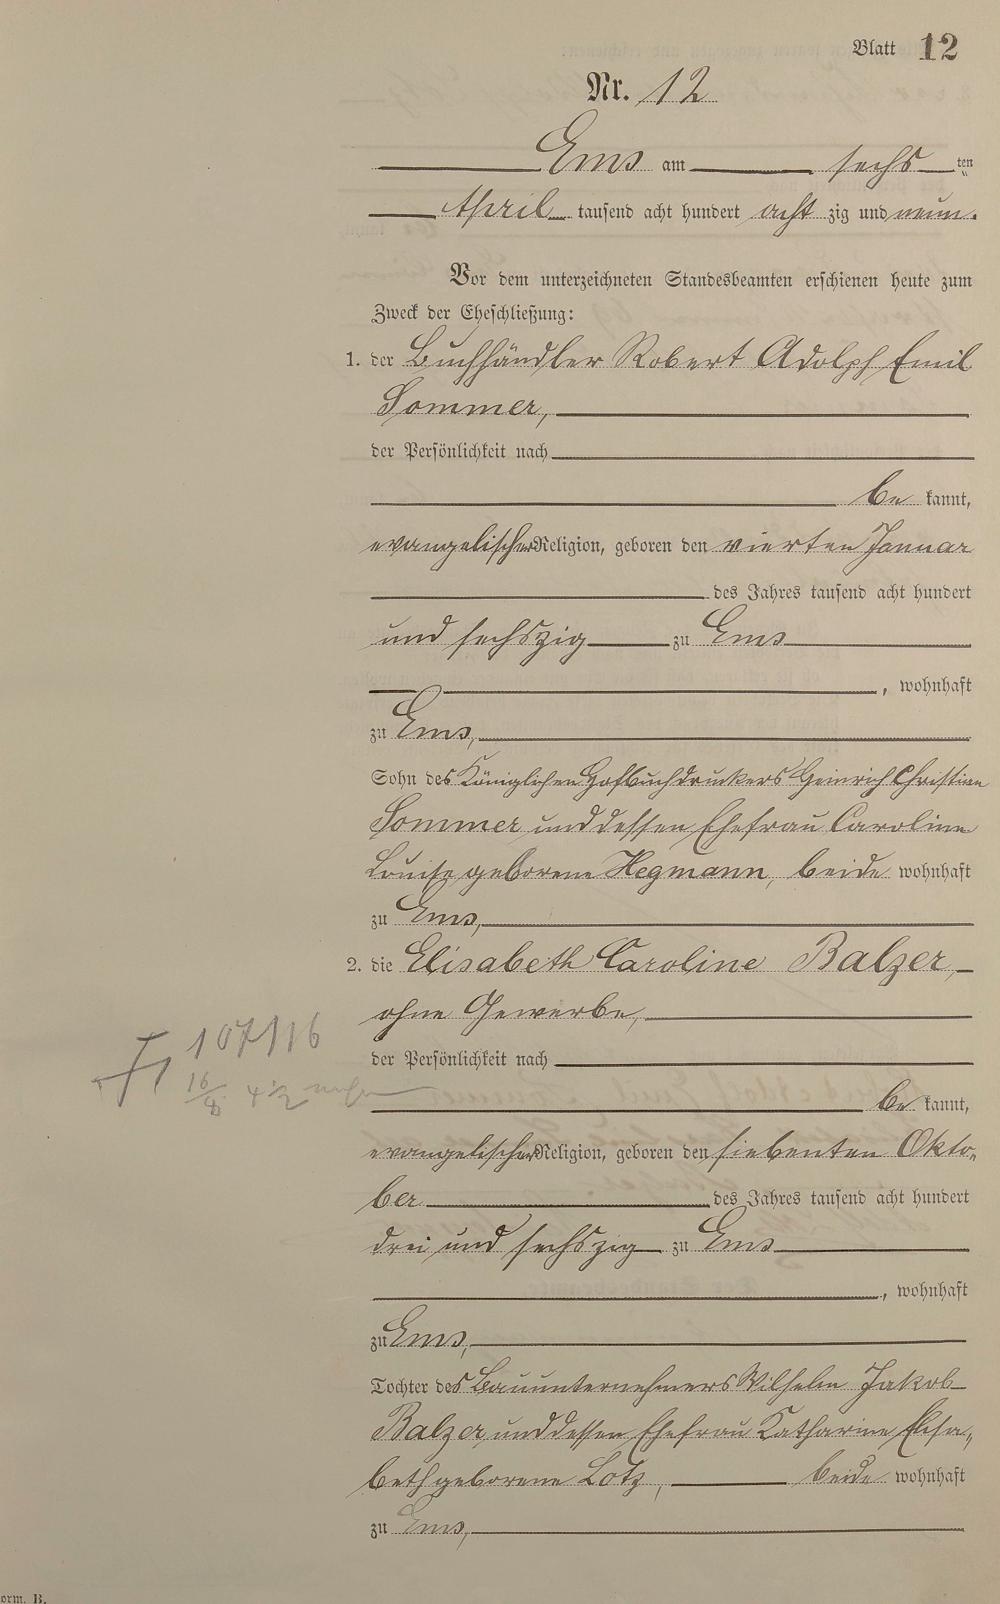 Blatt 12
Nr. 12
Ems am sechs ten
April tausend acht hundert acht zig und neun.
Vor dem unterzeichneten Standesbeamten erschienen heute zum
Zweck der Eheschließung:
1. der Buchhändler Robert Adolph Emil
Sommer,
der Persönlichkeit nach
be kannt,
evangelischer Religion, geboren den vierten Januar
des Jahres tausend acht hundert
und sechszig zu Ems
, wohnhaft
zu Ems,
Sohn des Königlichen Hofbuchdruckers Heinrich Christian
Sommer und dessen Ehefrau Caroline
Louise geborene Hegmann, beide wohnhaft
zu Ems,
2. die Elisabeth Caroline Balzer,
ohne Gewerbe,
der Persönlichkeit nach
be kannt,
evangelischer Religion, geboren den siebenten Okto-
ber des Jahres tausend acht hundert
drei und sechszig zu Ems
, wohnhaft
zu Ems,
Tochter des Bauunternehmers Wilhelm Jakob
Balzer und dessen Ehefrau Katharine Elisa-
beth geborene Lotz, beide wohnhaft
zu Ems,
orm. B.